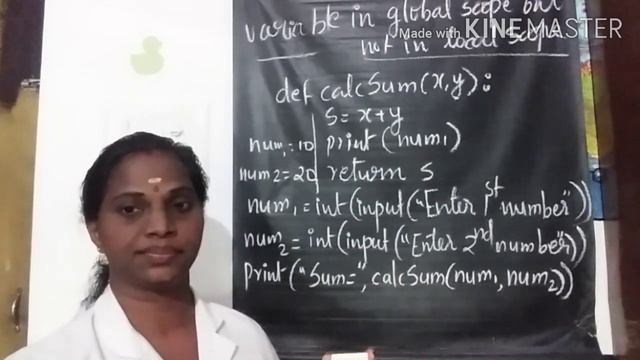 variable in global scope but
Made with KINEMASTER
not in local scope
def calcSum(x,y):
s = x+y
num1=10 print(num1)
num2=20 return s
num1=int(input("Enter 1st number"))
num2=int(input("Enter 2nd number"))
print("Sum=", calcSum(num1, num2))